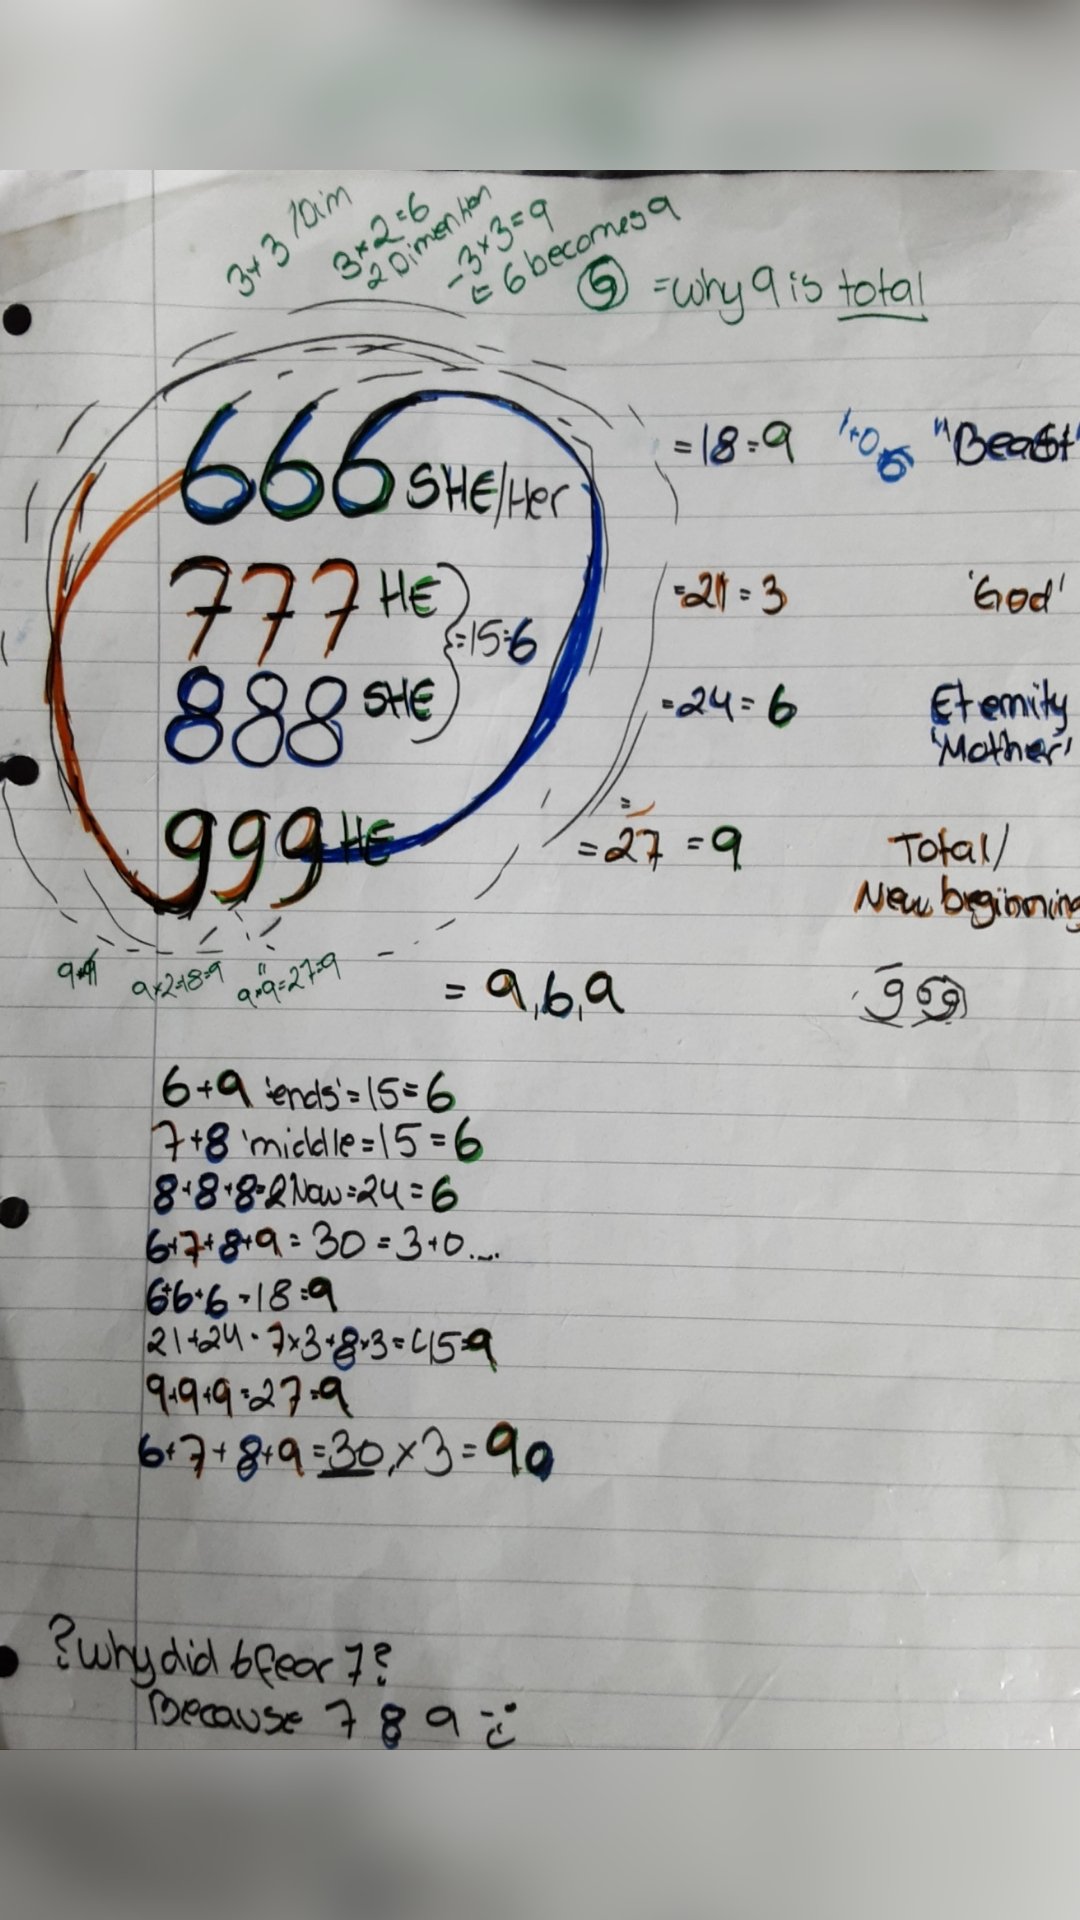 3+3 1Dim
3×2=6
2 Dimention
-3×3=9
= 6 becomes 9
= why 9 is total
666 SHE/Her =18=9 "Beast"
777 HE =21=3 'God'
=15=6
888 SHE =24=6 Eternity
'Mother'
999 HE =27=9 Total/
New beginning
9×2=18=9
9+9=27=9
= 9,6,9
6+9 'ends'=15=6
7+8 'middle=15=6
8+8+8=2Now=24=6
6+7+8+9=30=3+0....
6+6+6=18=9
21+24=7×3+8×3=45=9
9+9+9=27=9
6+7+8+9=30,×3=90
?Why did 6 fear 7?
Because 7 8 9